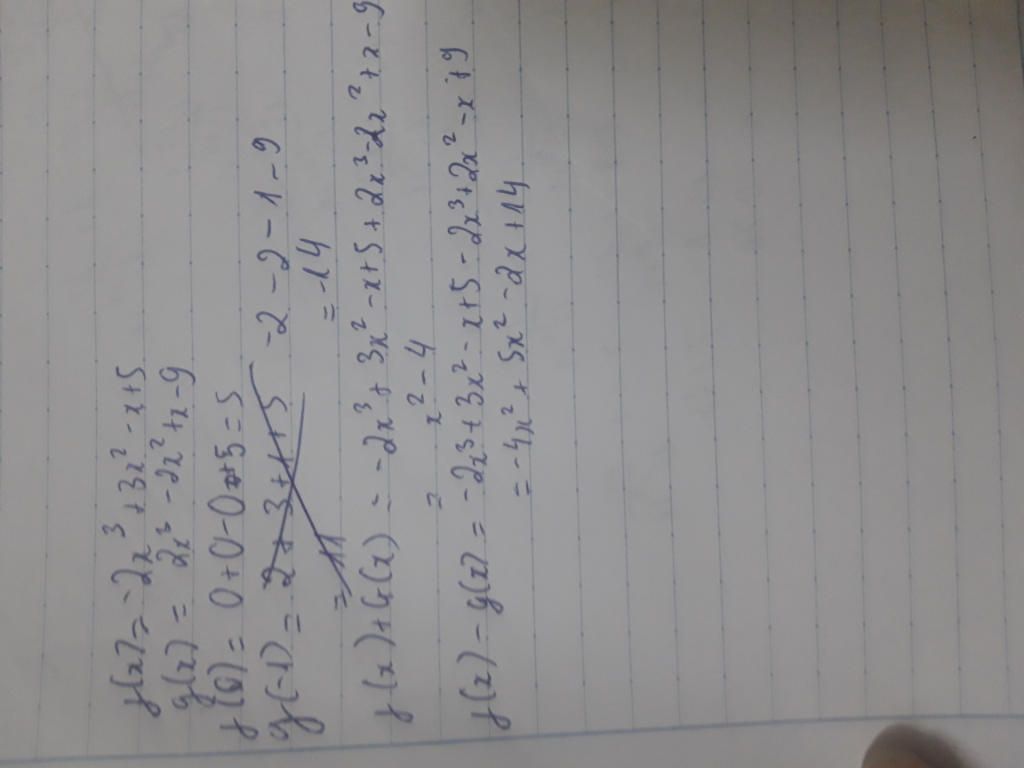 f(x) = -2x³ + 3x² - x + 5
g(x) = 2x³ - 2x² + x - 9
f(0) = 0 + 0 - 0 + 5 = 5
g(-1) = 2 + 3 + 1 + 5 -2 - 2 - 1 - 9
= 11 = -14
f(x) + G(x) = -2x³ + 3x² - x + 5 + 2x³ - 2x² + x - 9
= x² - 4
f(x) - g(x) = -2x³ + 3x² - x + 5 - 2x³ + 2x² - x + 9
= -4x² + 5x² - 2x + 14